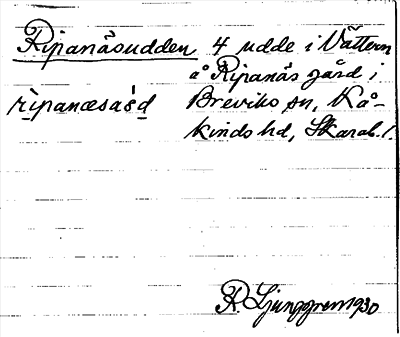 Ripanäsudden 4 udde i Vättern
å Ripanäs gård i
rìpanæsàsd Breviks sn, Kå-
kinds hd, Skarab. l.
R. Ljunggren 1930